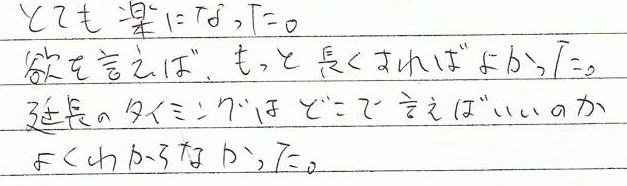 とても楽になった。
欲を言えば、もっと長くすればよかった。
延長のタイミングはどこで言えばいいのか
よくわからなかった。